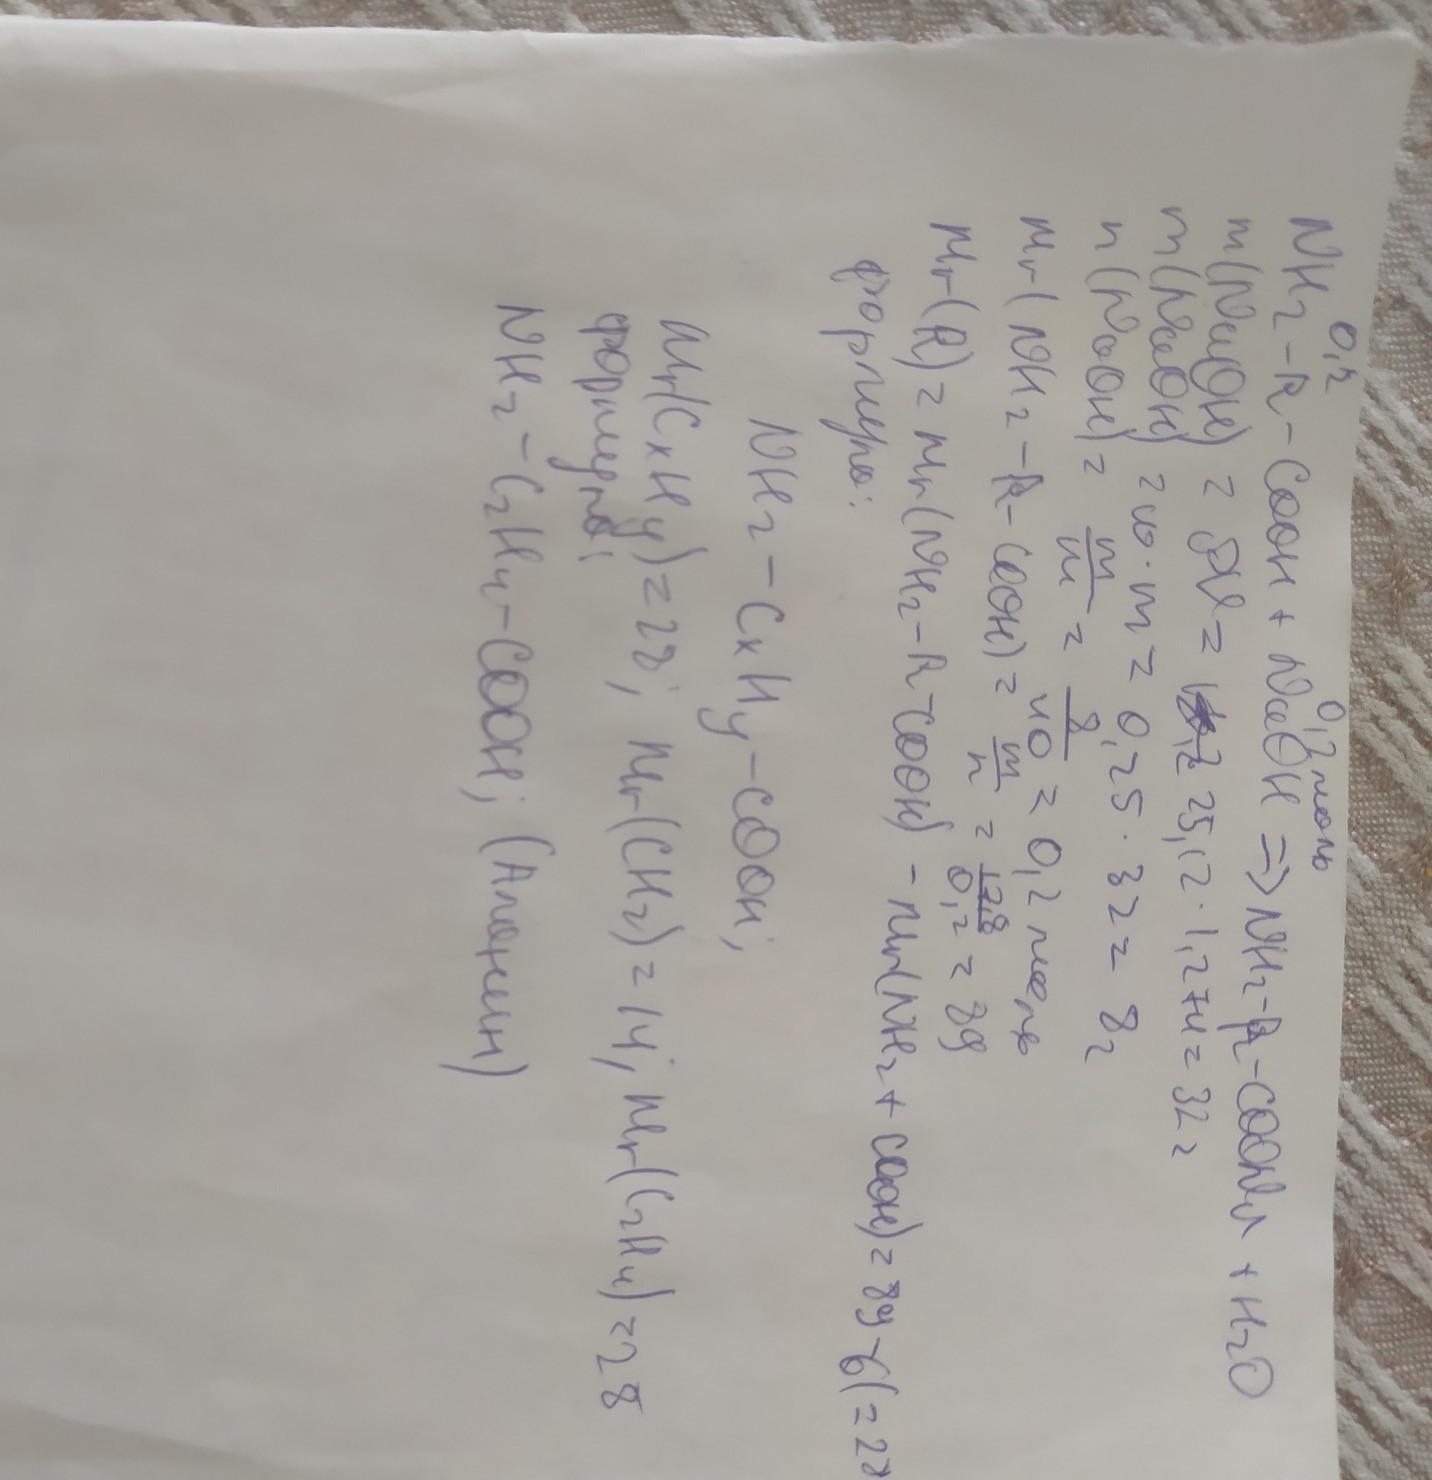 0,2 0,2 моль
NH2-R-COOH + NaOH => NH2-R-COONa + H2O
m(NaOH) = ρV = 25,12 · 1,274 = 32 г
m(NaOH) = ω · m = 0,25 · 32 = 8 г
n(NaOH) = m/M = 8/40 = 0,2 моль
Mr(NH2-R-COOH) = m/n = 17,8/0,2 = 89
Mr(R) = Mr(NH2-R-COOH) - Mr(NH2+COOH) = 89-61 = 28
формула:
NH2-CxHy-COOH;
Mr(CxHy) = 28; Mr(CH2) = 14; Mr(C2H4) = 28
формула:
NH2-C2H4-COOH; (Аланин)